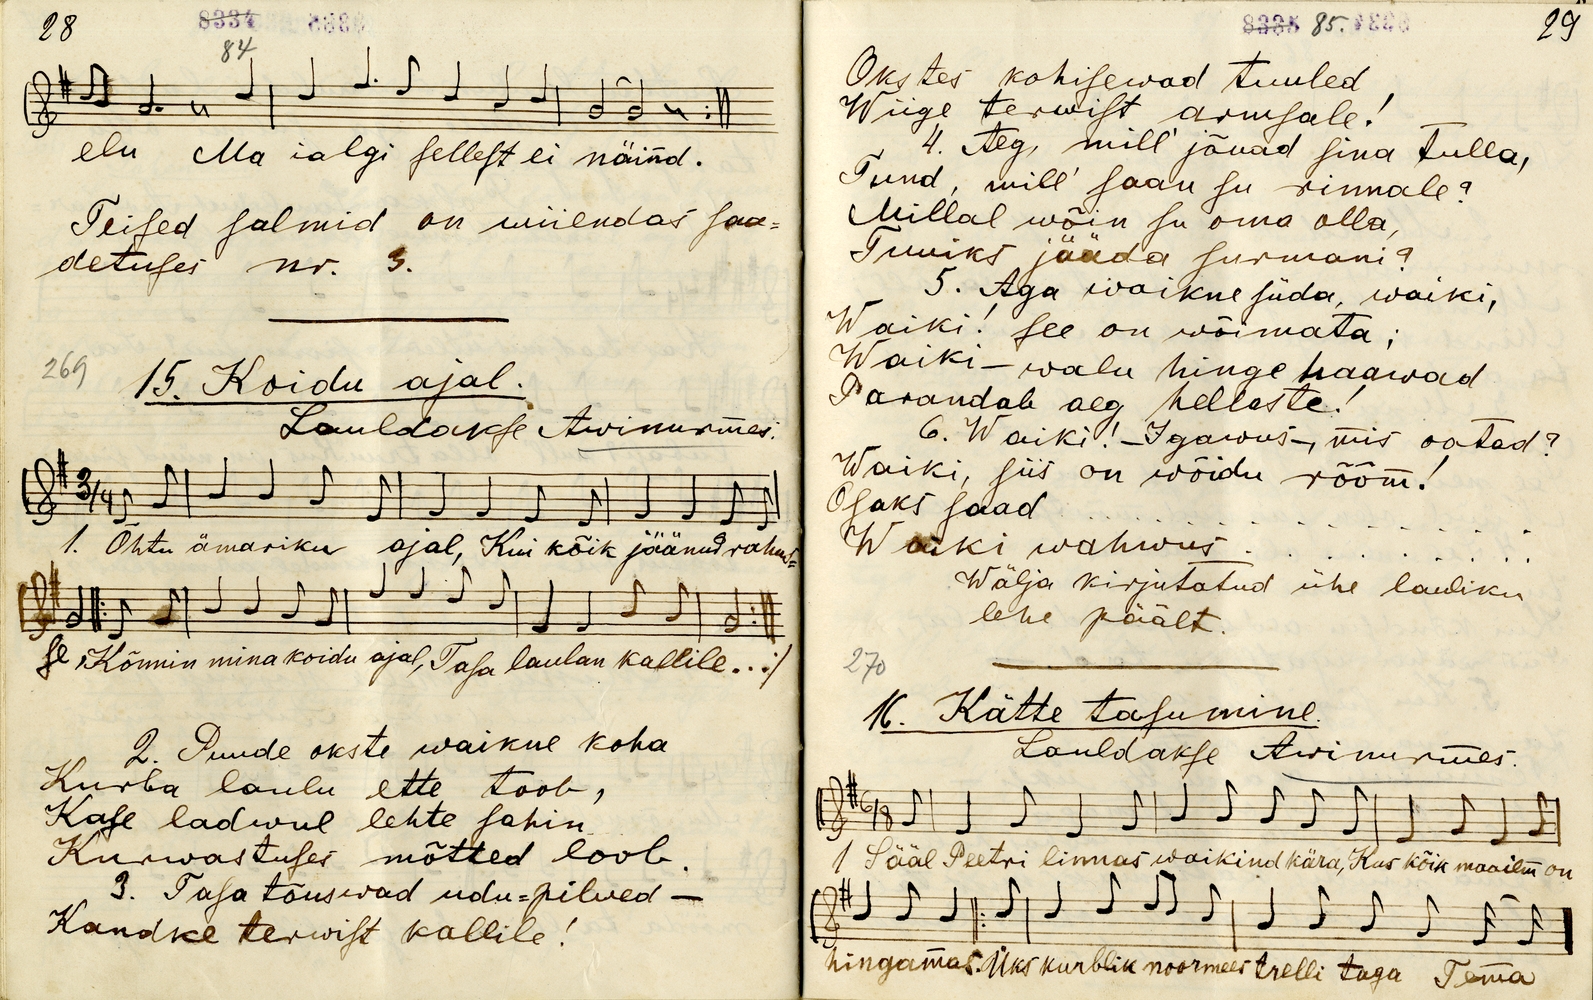 28
8334
84
elu Ma ialgi sellest ei näinud.
Teised salmid on wiiendas saa=
detuses nr. 3.
269
15. Koidu ajal.
Lauldakse Awinurmes.
3/4
1. Õhtu ämariku ajal, Kui kõik jäänud rahus=
se /: Kõnnin mina koidu ajal, Tasa laulan kallile.. :/
2. Puude okste waikne koha
Kurba laulu ette toob,
Kase ladwul lehte sahin
Kurwastuses mõtted loob.
3. Tasa tõuswad udu=pilwed –
Kandke terwist kallile!
29
8335 85.
Okstes kohisewad tuuled
Wiige terwist armsale!
4. Aeg, mill' jõuad sina tulla,
Tund, mill' saan su rinnale?
Millal wõin su oma olla,
Truuiks jääda surmani?
5. Aga waikne süda, waiki,
Waiki! see on wõimata;
Waiki – walu hinge haawad
Parandab aeg hellaste!
6. Waiki! – Igawus –, mis ootad?
Waiki, siis on wõidu rõõm!
Osaks saad . . . . . . . . . .
Waiki wahwus . . . . . . . .
Wälja kirjutatud ühe lauliku
lehe päält.
270
16. Kätte tasumine.
Lauldakse Awinurmes.
6/8
1 Sääl Peetri linnas waikind kära, Kus kõik maailm on
hingamas. Üks kurblik noormees trelli taga Tema